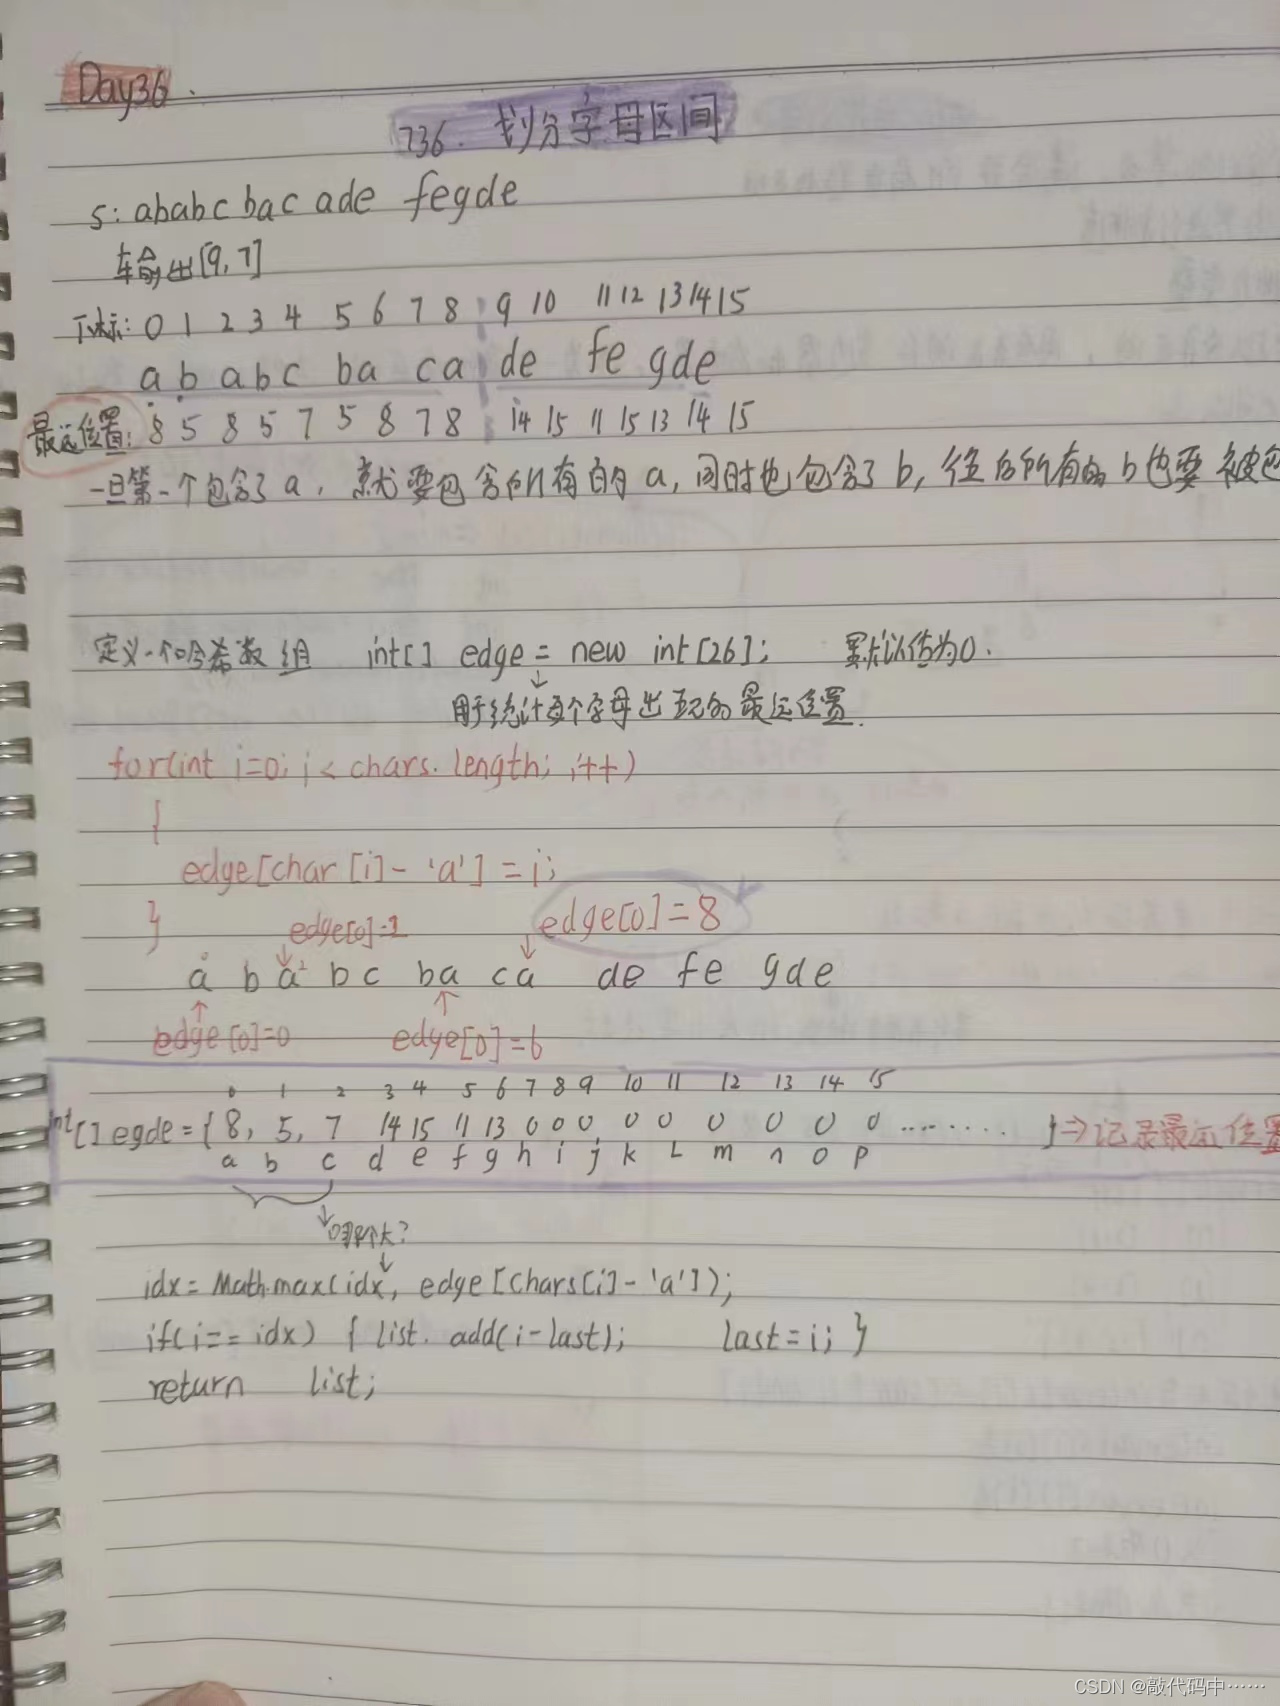 Day36.
736. 划分字母区间
S: ababc bac ade fegde
输出[9,7]
下标: 0 1 2 3 4 5 6 7 8 9 10 11 12 13 14 15
a b a b c b a c a d e f e g d e
最远位置: 8 5 8 5 7 5 8 7 8 14 15 11 15 13 14 15
一旦第一个包含了a, 就要包含所有的a, 同时也包含了b, 往后所有的b也要被包
定义一个哈希数组 int[] edge = new int[26]; 默认值为0.
用于统计每个字母出现的最远位置.
for(int i=0; i < chars.length; i++)
{
edge[char[i]-'a'] = i;
}
edge[0]=2 edge[0]=8
a b a b c b a c a d e f e g d e
edge[0]=0 edge[0]=6
0 1 2 3 4 5 6 7 8 9 10 11 12 13 14 15
int[] egde = { 8, 5, 7 14 15 11 13 0 0 0, 0 0 0 0 0 0 ........ } ⇒ 记录最远位置
a b c d e f g h i j k L m n o p
哪个大?
idx = Math.max(idx, edge[chars[i]-'a']);
if(i == idx) { list.add(i-last); last=i; }
return list;
CSDN @敲代码中……